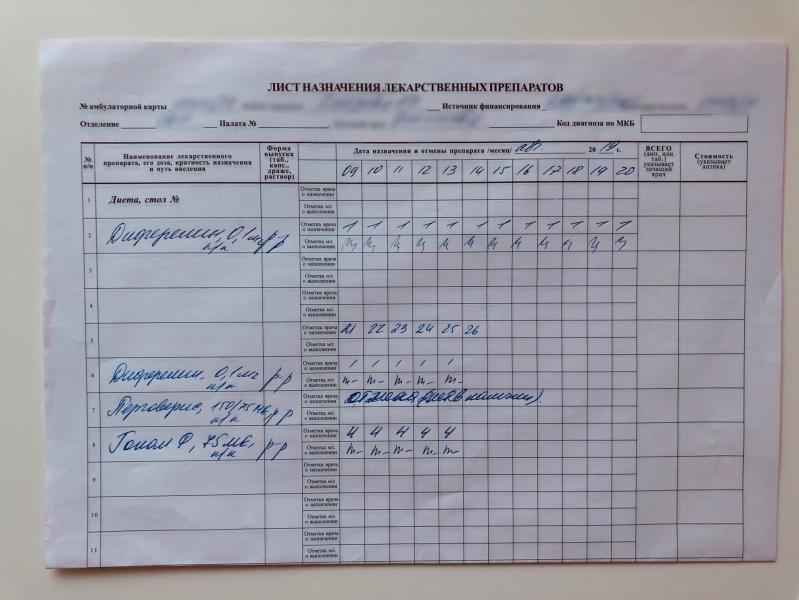 ЛИСТ НАЗНАЧЕНИЯ ЛЕКАРСТВЕННЫХ ПРЕПАРАТОВ
№ амбулаторной карты Источник финансирования
Отделение Палата № Код диагноза по МКБ
№ п/п
Наименование лекарственного препарата, его доза, кратность назначения и путь введения
Форма выпуска (таб., капс., драже, раствор)
Дата назначения и отмены препарата /месяц/ авг. 20 19 г.
ВСЕГО (амп. или таб.) указывает лечащий врач
Стоимость (указывает аптека)
09 10 11 12 13 14 15 16 17 18 19 20
1 Диета, стол № Отметка врача о назначении
Отметка м/с о выполнении
2 Диферелин, 0,1 мг п/к р-р Отметка врача о назначении 1 1 1 1 1 1 1 1 1 1 1 1
Отметка м/с о выполнении
3 Отметка врача о назначении
Отметка м/с о выполнении
4 Отметка врача о назначении
Отметка м/с о выполнении
5 Отметка врача о назначении 21 22 23 24 25 26
Отметка м/с о выполнении
6 Диферелин, 0,1 мг п/к р-р Отметка врача о назначении 1 1 1 1 1
Отметка м/с о выполнении
7 Перговерис, 150/75 МЕ п/к р-р Отметка врача о назначении (нет в наличии)
Отметка м/с о выполнении
8 Гонал Ф, 75 МЕ, п/к р-р Отметка врача о назначении 4 4 4 4 4
Отметка м/с о выполнении
9 Отметка врача о назначении
Отметка м/с о выполнении
10 Отметка врача о назначении
Отметка м/с о выполнении
11 Отметка врача о назначении
Отметка м/с о выполнении